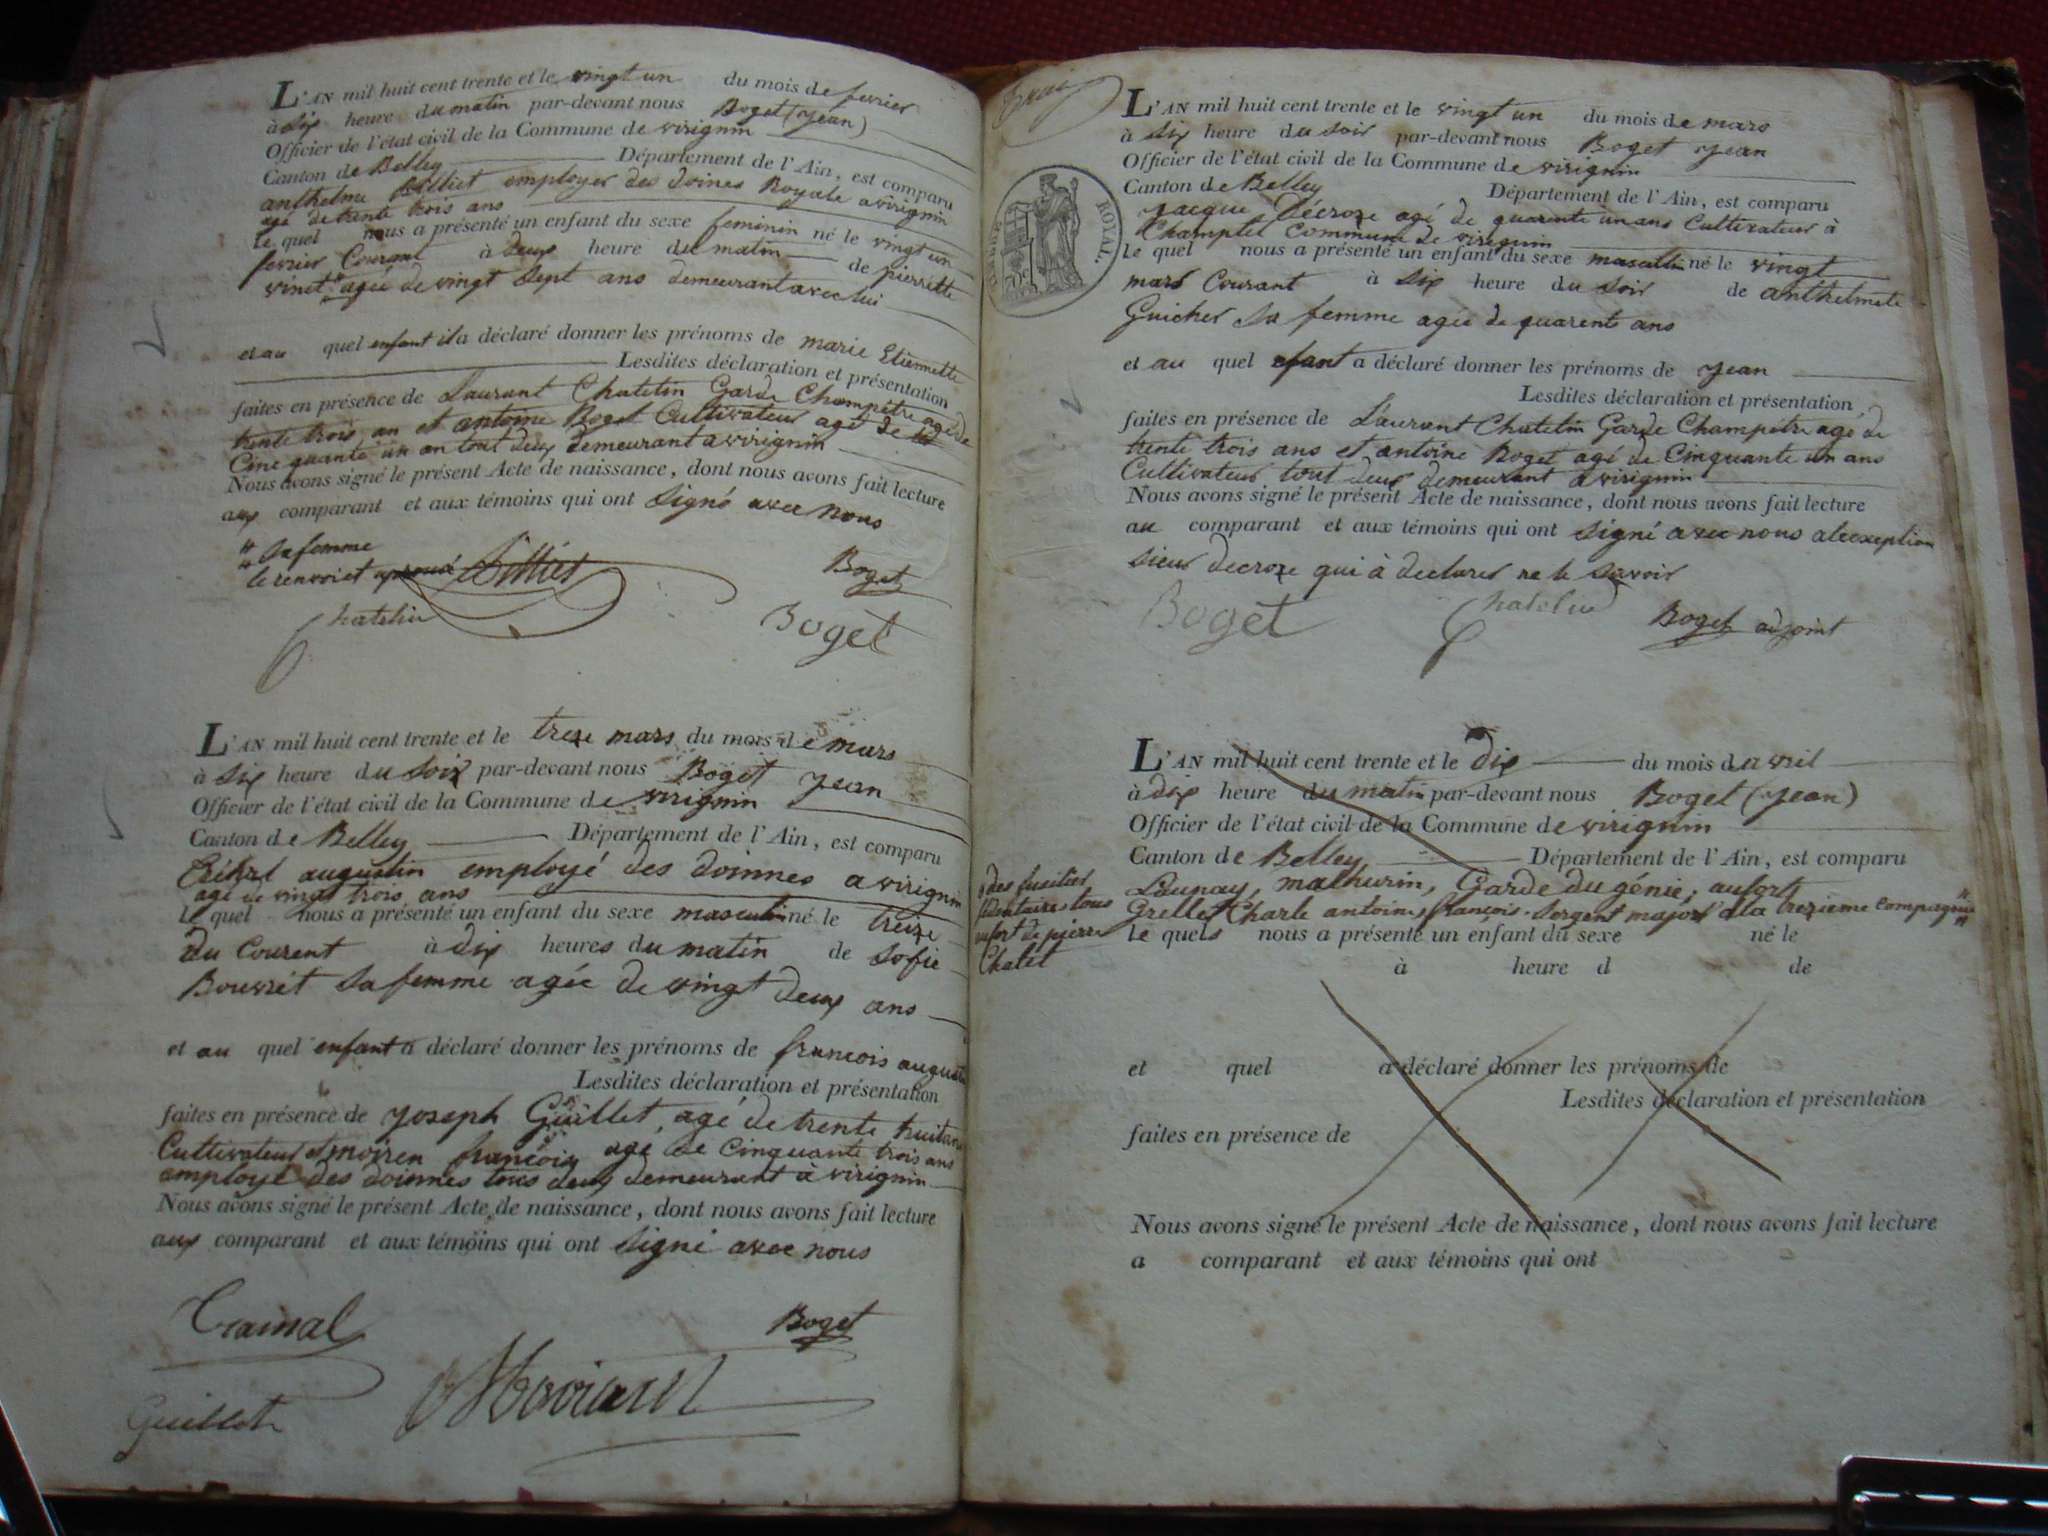 L'AN mil huit cent trente et le vingt un du mois de fevrier
à dix heure du matin par-devant nous Boget (Jean)
Officier de l'état civil de la Commune de virignin
Canton de Belley Département de l'Ain, est comparu
anthelme Billiet employer des doines Royale a virignin
agé de trente trois ans
le quel nous a présenté un enfant du sexe feminin né le vingt un
fevrier Courant à deux heure du matin de pierrette
vinet " agée de vingt Sept ans demeurant avec lui
et au quel enfant il a déclaré donner les prénoms de marie Etiennette
Lesdites déclaration et présentation
faites en présence de Laurant Chatelin Garde Champêtre agé de
trente trois an et antoine Boget Cultivateur agé de
Cinq quante un an tout deux demeurant a virignin
Nous avons signé le présent Acte de naissance, dont nous avons fait lecture
aux comparant et aux témoins qui ont Signé avec nous
" Sa femme
le renvoi et aprouvé Billiet Boget
Chatelin Boget
L'AN mil huit cent trente et le treze mars du mois de mars
à Six heure du Soir par-devant nous Boget Jean
Officier de l'état civil de la Commune de virignin
Canton de Belley Département de l'Ain, est comparu
augustin employé des doinnes a virignin
agé de vingt trois ans
le quel nous a présenté un enfant du sexe masculin né le treize
du Courent à dix heures du matin de Sofie
Bouvret Sa femme agée de vingt deux ans
et au quel enfant a déclaré donner les prénoms de francois augustin
Lesdites déclaration et présentation
faites en présence de Joseph Guillet, agé de trente huit ans
Cultivateur et moiren francois agé de Cinquante trois ans
employé des doinnes tous deux demeurant à virignin
Nous avons signé le présent Acte de naissance, dont nous avons fait lecture
aux comparant et aux témoins qui ont Signé avec nous
Boget
Guillet
L'AN mil huit cent trente et le vingt un du mois de mars
à Six heure du Soir par-devant nous Boget Jean
Officier de l'état civil de la Commune de virignin
Canton de Belley Département de l'Ain, est comparu
Jacque Décroze agé de quarente un ans Cultivateur à
Champtel Commune de virignin
le quel nous a présenté un enfant du sexe masculin né le vingt
mars Courant à Six heure du Soir de anthelmete
Guicher Sa femme agée de quarente ans
et au quel efant a déclaré donner les prénoms de Jean
Lesdites déclaration et présentation
faites en présence de Laurant Chatelin Garde Champêtre agé de
trente trois ans et antoine Boget agé de Cinquante un ans
Cultivateur tout deux demeurant a virignin
Nous avons signé le présent Acte de naissance, dont nous avons fait lecture
au comparant et aux témoins qui ont Signé avec nous a leexeption
sieur decroze qui à declarer ne le Savoir
Boget Chatelin Boget adjoint
ROYAL.
L'AN mil huit cent trente et le dix du mois d avril
à dix heure du matin par-devant nous Boget (Jean)
Officier de l'état civil de la Commune de virignin
Canton de Belley Département de l'Ain, est comparu
Launay, mathurin, Garde du génie, au fort
Grellet Charle antoine, françois Sergent major a la trezieme Compagnie "
des fusilier
Sédentaires tous
au fort de pierre
Chatel
le quels nous a présenté un enfant du sexe né le
à heure d de
et quel a déclaré donner les prénoms de
Lesdites déclaration et présentation
faites en présence de
Nous avons signé le présent Acte de naissance, dont nous avons fait lecture
a comparant et aux témoins qui ont